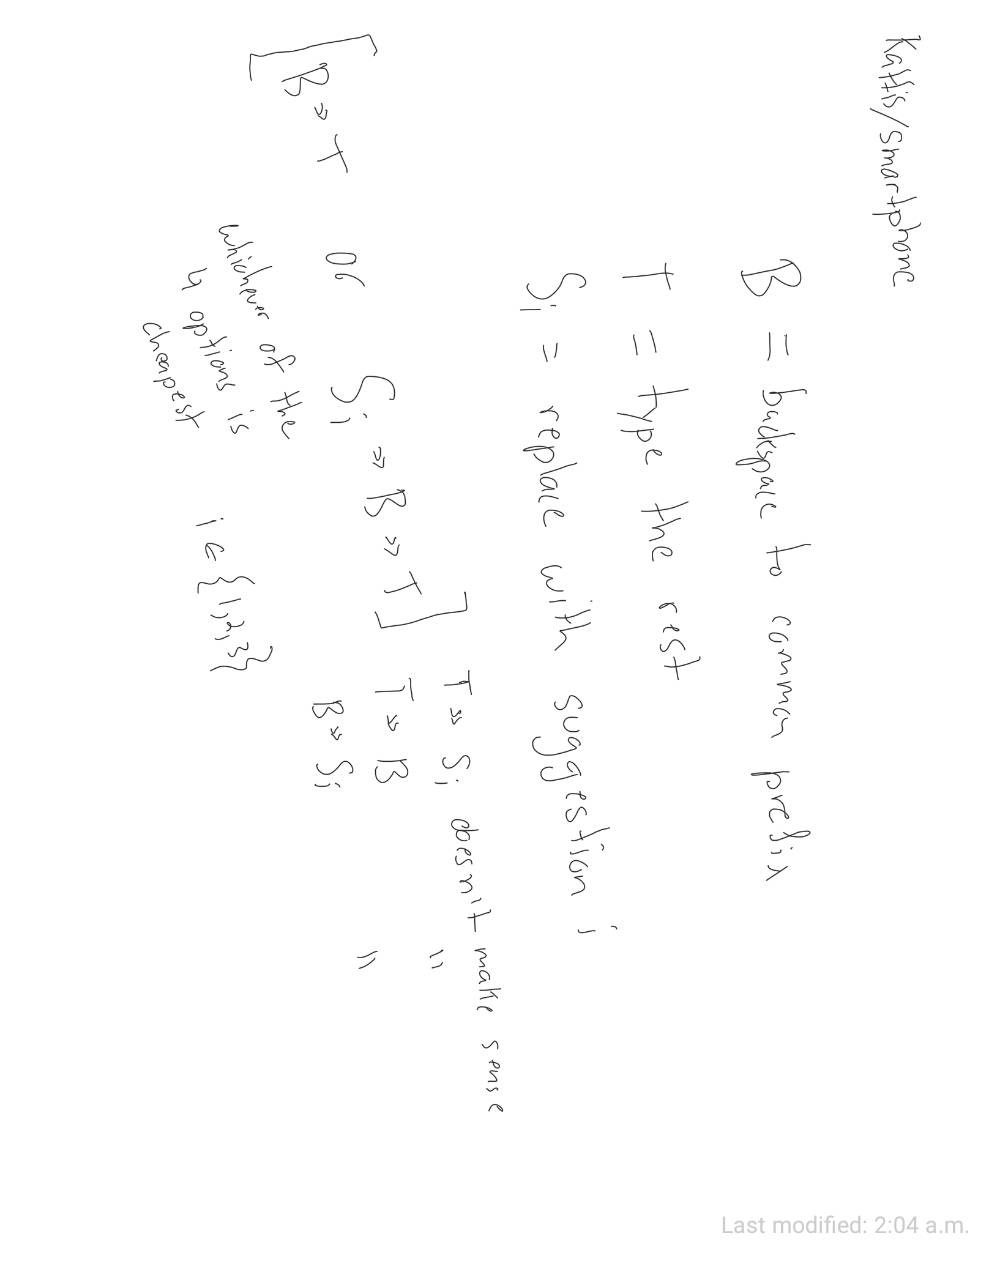 Kattis/smartphone
B = backspace to common prefix
T = type the rest
Si = replace with suggestion i
[B » T or Si » B » T]
whichever of the
4 options is
cheapest
i ∈ {1,2,3}
T » Si doesn't make sense
T » B "
B » Si "
Last modified: 2:04 a.m.